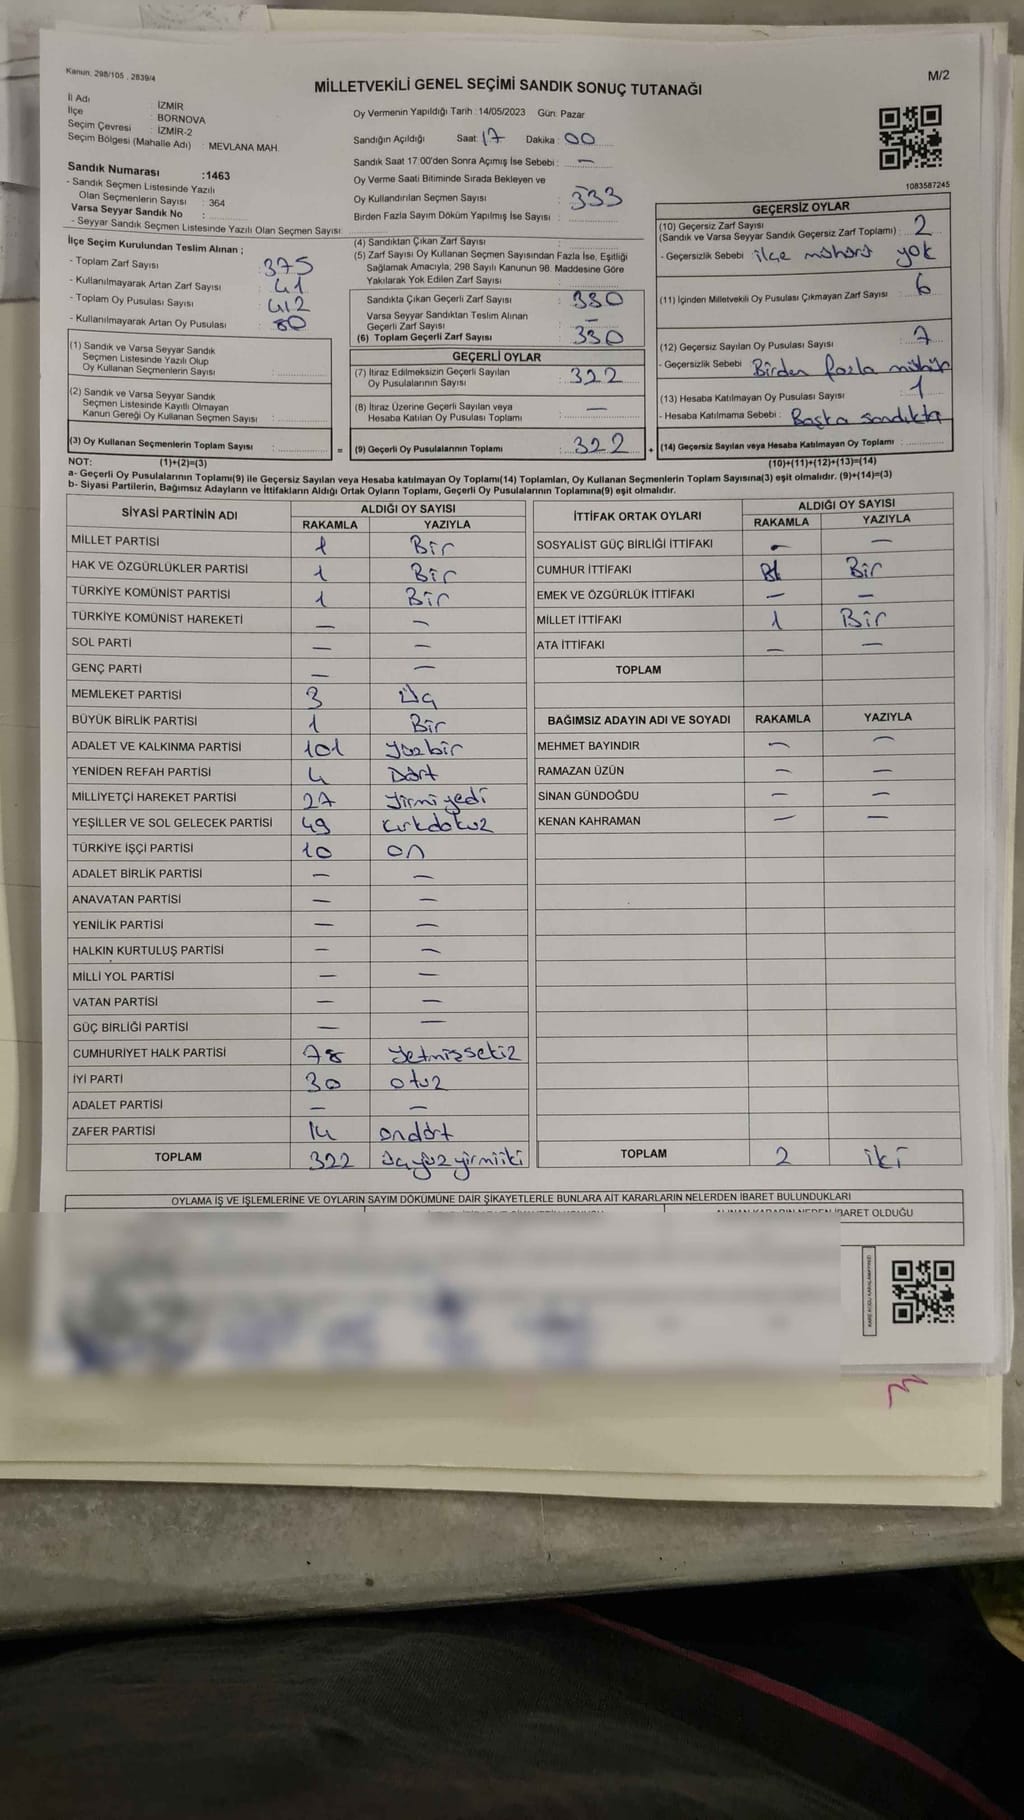 Kanun: 298/105 , 2839/4
MİLLETVEKİLİ GENEL SEÇİMİ SANDIK SONUÇ TUTANAĞI
M/2
İl Adı : İZMİR
İlçe : BORNOVA
Seçim Çevresi : İZMİR-2
Seçim Bölgesi (Mahalle Adı) : MEVLANA MAH.
Oy Vermenin Yapıldığı Tarih : 14/05/2023 Gün: Pazar
Sandığın Açıldığı Saat: 17 Dakika : 00
Sandık Saat 17:00'den Sonra Açımış İse Sebebi : —
Oy Verme Saati Bitiminde Sırada Bekleyen ve
Oy Kullandırılan Seçmen Sayısı : 333
Birden Fazla Sayım Döküm Yapılmış İse Sayısı :
1083587245
Sandık Numarası : 1463
- Sandık Seçmen Listesinde Yazılı
Olan Seçmenlerin Sayısı : 364
Varsa Seyyar Sandık No :
- Seyyar Sandık Seçmen Listesinde Yazılı Olan Seçmen Sayısı:
İlçe Seçim Kurulundan Teslim Alınan ;
- Toplam Zarf Sayısı : 375
- Kullanılmayarak Artan Zarf Sayısı : 41
- Toplam Oy Pusulası Sayısı : 412
- Kullanılmayarak Artan Oy Pusulası : 80
(1) Sandık ve Varsa Seyyar Sandık
Seçmen Listesinde Yazılı Olup
Oy Kullanan Seçmenlerin Sayısı :
(2) Sandık ve Varsa Seyyar Sandık
Seçmen Listesinde Kayıtlı Olmayan
Kanun Gereği Oy Kullanan Seçmen Sayısı :
(3) Oy Kullanan Seçmenlerin Toplam Sayısı :
(1)+(2)=(3)
(4) Sandıktan Çıkan Zarf Sayısı :
(5) Zarf Sayısı Oy Kullanan Seçmen Sayısından Fazla İse, Eşitliği
Sağlamak Amacıyla, 298 Sayılı Kanunun 98. Maddesine Göre
Yakılarak Yok Edilen Zarf Sayısı :
Sandıkta Çıkan Geçerli Zarf Sayısı : 330
Varsa Seyyar Sandıktan Teslim Alınan
Geçerli Zarf Sayısı : —
(6) Toplam Geçerli Zarf Sayısı : 330
GEÇERLİ OYLAR
(7) İtiraz Edilmeksizin Geçerli Sayılan
Oy Pusulalarının Sayısı : 322
(8) İtiraz Üzerine Geçerli Sayılan veya
Hesaba Katılan Oy Pusulası Toplamı : —
= (9) Geçerli Oy Pusulalarının Toplamı : 322 +
GEÇERSİZ OYLAR
(10) Geçersiz Zarf Sayısı
(Sandık ve Varsa Seyyar Sandık Geçersiz Zarf Toplamı) : 2
- Geçersizlik Sebebi : ilçe mührü yok
(11) İçinden Milletvekili Oy Pusulası Çıkmayan Zarf Sayısı : 6
(12) Geçersiz Sayılan Oy Pusulası Sayısı : 7
- Geçersizlik Sebebi Birden fazla mühür
(13) Hesaba Katılmayan Oy Pusulası Sayısı : 1
- Hesaba Katılmama Sebebi : Başka sandıkta
(14) Geçersiz Sayılan veya Hesaba Katılmayan Oy Toplamı :
(10)+(11)+(12)+(13)=(14)
NOT:
a- Geçerli Oy Pusulalarının Toplamı(9) ile Geçersiz Sayılan veya Hesaba katılmayan Oy Toplamı(14) Toplamları, Oy Kullanan Seçmenlerin Toplam Sayısına(3) eşit olmalıdır. (9)+(14)=(3)
b- Siyasi Partilerin, Bağımsız Adayların ve İttifakların Aldığı Ortak Oyların Toplamı, Geçerli Oy Pusulalarının Toplamına(9) eşit olmalıdır.
SİYASİ PARTİNİN ADI ALDIĞI OY SAYISI
RAKAMLA YAZIYLA
MİLLET PARTİSİ 1 Bir
HAK VE ÖZGÜRLÜKLER PARTİSİ 1 Bir
TÜRKİYE KOMÜNİST PARTİSİ 1 Bir
TÜRKİYE KOMÜNİST HAREKETİ — —
SOL PARTİ — —
GENÇ PARTİ — —
MEMLEKET PARTİSİ 3 Üç
BÜYÜK BİRLİK PARTİSİ 1 Bir
ADALET VE KALKINMA PARTİSİ 101 Yüzbir
YENİDEN REFAH PARTİSİ 4 Dört
MİLLİYETÇİ HAREKET PARTİSİ 27 Yirmiyedi
YEŞİLLER VE SOL GELECEK PARTİSİ 49 Kırkdokuz
TÜRKİYE İŞÇİ PARTİSİ 10 On
ADALET BİRLİK PARTİSİ — —
ANAVATAN PARTİSİ — —
YENİLİK PARTİSİ — —
HALKIN KURTULUŞ PARTİSİ — —
MİLLİ YOL PARTİSİ — —
VATAN PARTİSİ — —
GÜÇ BİRLİĞİ PARTİSİ — —
CUMHURİYET HALK PARTİSİ 78 Yetmişsekiz
İYİ PARTİ 30 Otuz
ADALET PARTİSİ — —
ZAFER PARTİSİ 14 Ondört
TOPLAM 322 Üçyüzyirmiiki
İTTİFAK ORTAK OYLARI ALDIĞI OY SAYISI
RAKAMLA YAZIYLA
SOSYALİST GÜÇ BİRLİĞİ İTTİFAKI — —
CUMHUR İTTİFAKI 1 Bir
EMEK VE ÖZGÜRLÜK İTTİFAKI — —
MİLLET İTTİFAKI 1 Bir
ATA İTTİFAKI — —
TOPLAM
BAĞIMSIZ ADAYIN ADI VE SOYADI RAKAMLA YAZIYLA
MEHMET BAYINDIR — —
RAMAZAN ÜZÜN — —
SİNAN GÜNDOĞDU — —
KENAN KAHRAMAN — —
TOPLAM 2 iki
OYLAMA İŞ VE İŞLEMLERİNE VE OYLARIN SAYIM DÖKÜMÜNE DAİR ŞİKAYETLERLE BUNLARA AİT KARARLARIN NELERDEN İBARET BULUNDUKLARI
İBARET OLDUĞU